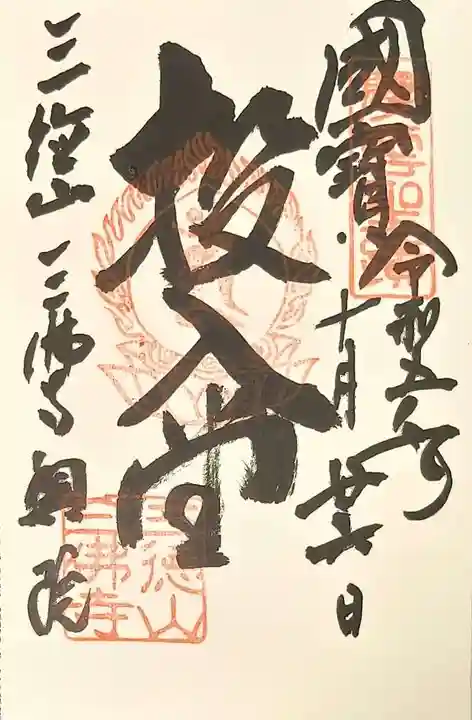 國寶
令和五年
十月廿日
投入堂
三徳山 三佛寺 奥院
三徳山
三佛寺